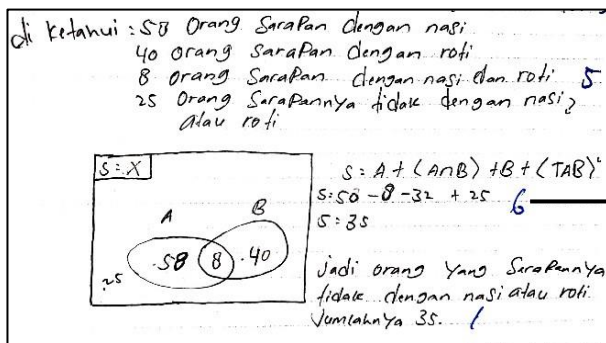 di ketahui : 58 Orang Sarapan dengan nasi
40 orang Sarapan dengan roti
8 orang Sarapan dengan nasi dan roti 5
25 Orang Sarapannya tidak dengan nasi
atau roti
S = X
A B
.58 8 .40
.25
S = A + (A∩B) + B + (TAB)
S = 50 - 8 - 32 + 25 6
S = 35
Jadi orang yang Sarapannya
tidak dengan nasi atau roti
Jumlahnya 35. 1